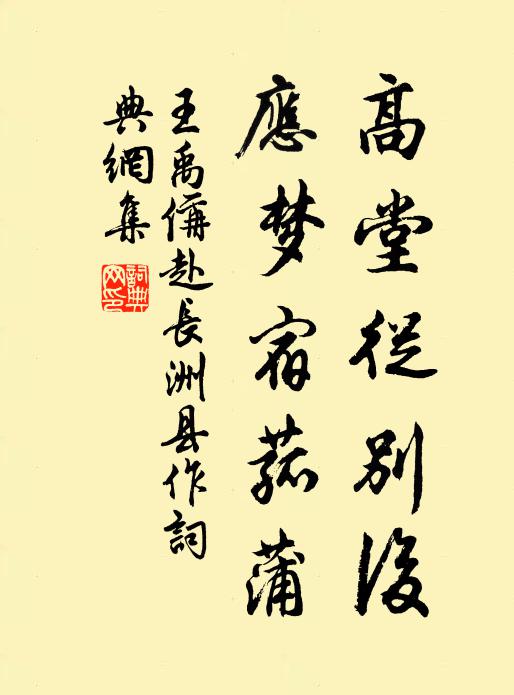 高堂從別後
應梦宿菰蒲
王禹偁赴長洲县作詞
典網集
詞典网印